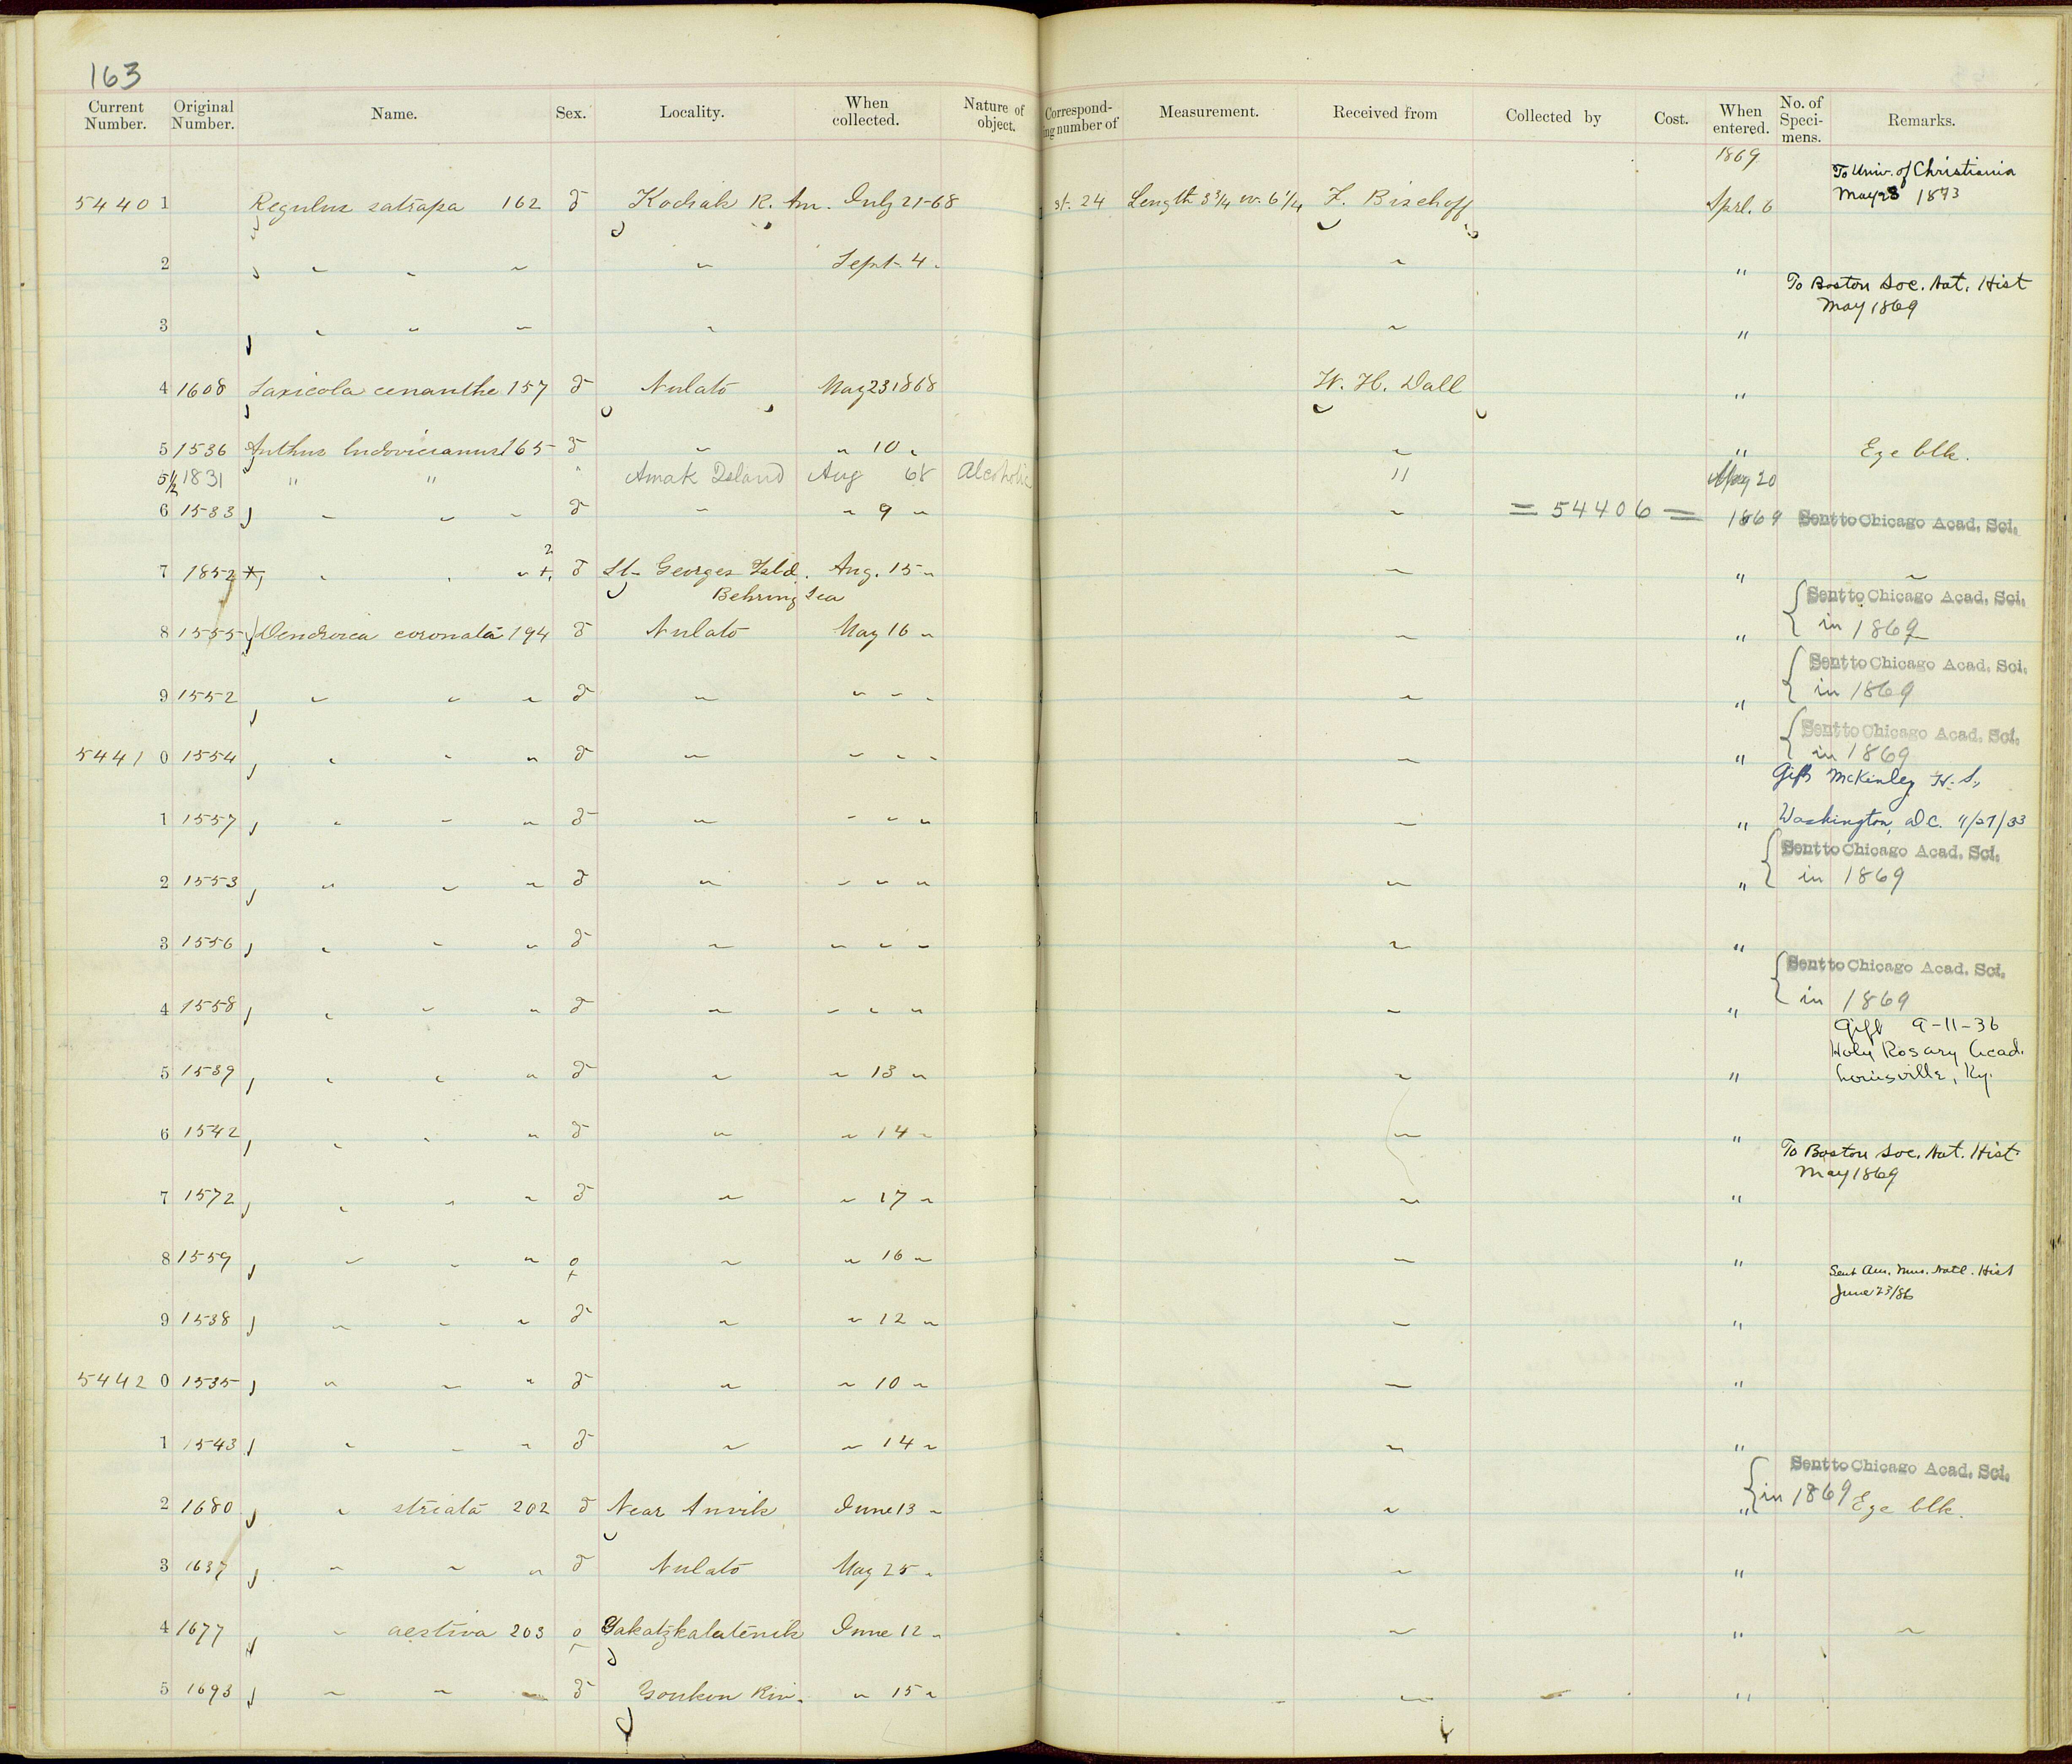 163
Current Number. Original Number. Name. Sex. Locality. When collected. Nature of object. Correspond-ing number of Measurement. Received from Collected by Cost. When entered. No. of Speci-mens. Remarks.
1869 To Univ. of Christiania
5440 1 Regulus satrapa 162 ♂ Kodiak R. Am. July 21-68 st. 24 Length 3 3/4 w. 6 1/4 F. Bischoff Aprl. 6 May 23 1873
2 " " " " " Sept. 4 " " "
To Boston Soc. Nat. Hist
May 1869
3 " " " " " " "
4 1608 Saxicola œnanthe 157 ♂ Nulato May 23 1868 W. H. Dall "
5 1536 Anthus ludovicianus 165 ♂ " " 10 " " " Eye blk.
5 1/2 1831 " " " Amak Island Aug 68 Alcoholic " May 20
6 1533 " " " ♂ " " 9 " " = 54406 = 1869 Sent to Chicago Acad. Sci.
7 1852 * " " " ♂ St. Georges Isld. Aug. 15 " " " "
Behring Sea
Sent to Chicago Acad. Sci.
8 1555 Dendroica coronata 194 ♂ Nulato May 16 " " " in 1869
Sent to Chicago Acad. Sci.
9 1552 " " " ♂ " " " " " " in 1869
Sent to Chicago Acad. Sci.
5441 0 1554 " " " ♂ " " " " " " in 1869
Gift McKinley H. S.,
1 1557 " " " ♂ " " " " " " Washington, D.C. 11/27/33
Sent to Chicago Acad. Sci.
2 1553 " " " ♂ " " " " " " in 1869
3 1556 " " " ♂ " " " " " "
Sent to Chicago Acad. Sci.
4 1558 " " " ♂ " " " " " " in 1869
Gift 9-11-36
Holy Rosary Acad.
5 1539 " " " ♂ " " 13 " " " Louisville, Ky.
6 1542 " " " ♂ " " 14 " " "
To Boston Soc. Nat. Hist
May 1869
7 1572 " " " ♂ " " 17 " " "
8 1559 " " " ♀ " " 16 " " "
Sent Am. Mus. Natl. Hist
June 23/86
9 1538 " " " ♂ " " 12 " " "
5442 0 1535 " " " ♂ " " 10 " " "
1 1543 " " " ♂ " " 14 " " "
Sent to Chicago Acad. Sci.
2 1680 " striata 202 ♂ Near Anvik June 13 " " " in 1869 Eye blk.
3 1637 " " " ♂ Nulato May 25 " " "
4 1677 " aestiva 203 ♀ Yakatzkalatenik June 12 " " " "
5 1693 " " " ♂ Youkon Riv. " 15 " " "